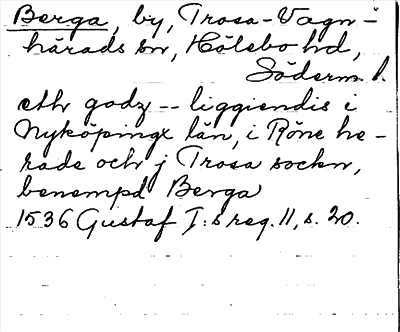 Berga, by, Trosa-Vagn-
härads sn, Hölebo hd,
Söderm. l.
eth godz -- liggiendis i
Nyköpingx län, i Röne he-
rade och j Trosa sockn,
benempd Berga
1536 Gustaf I:s reg. 11, s. 20.